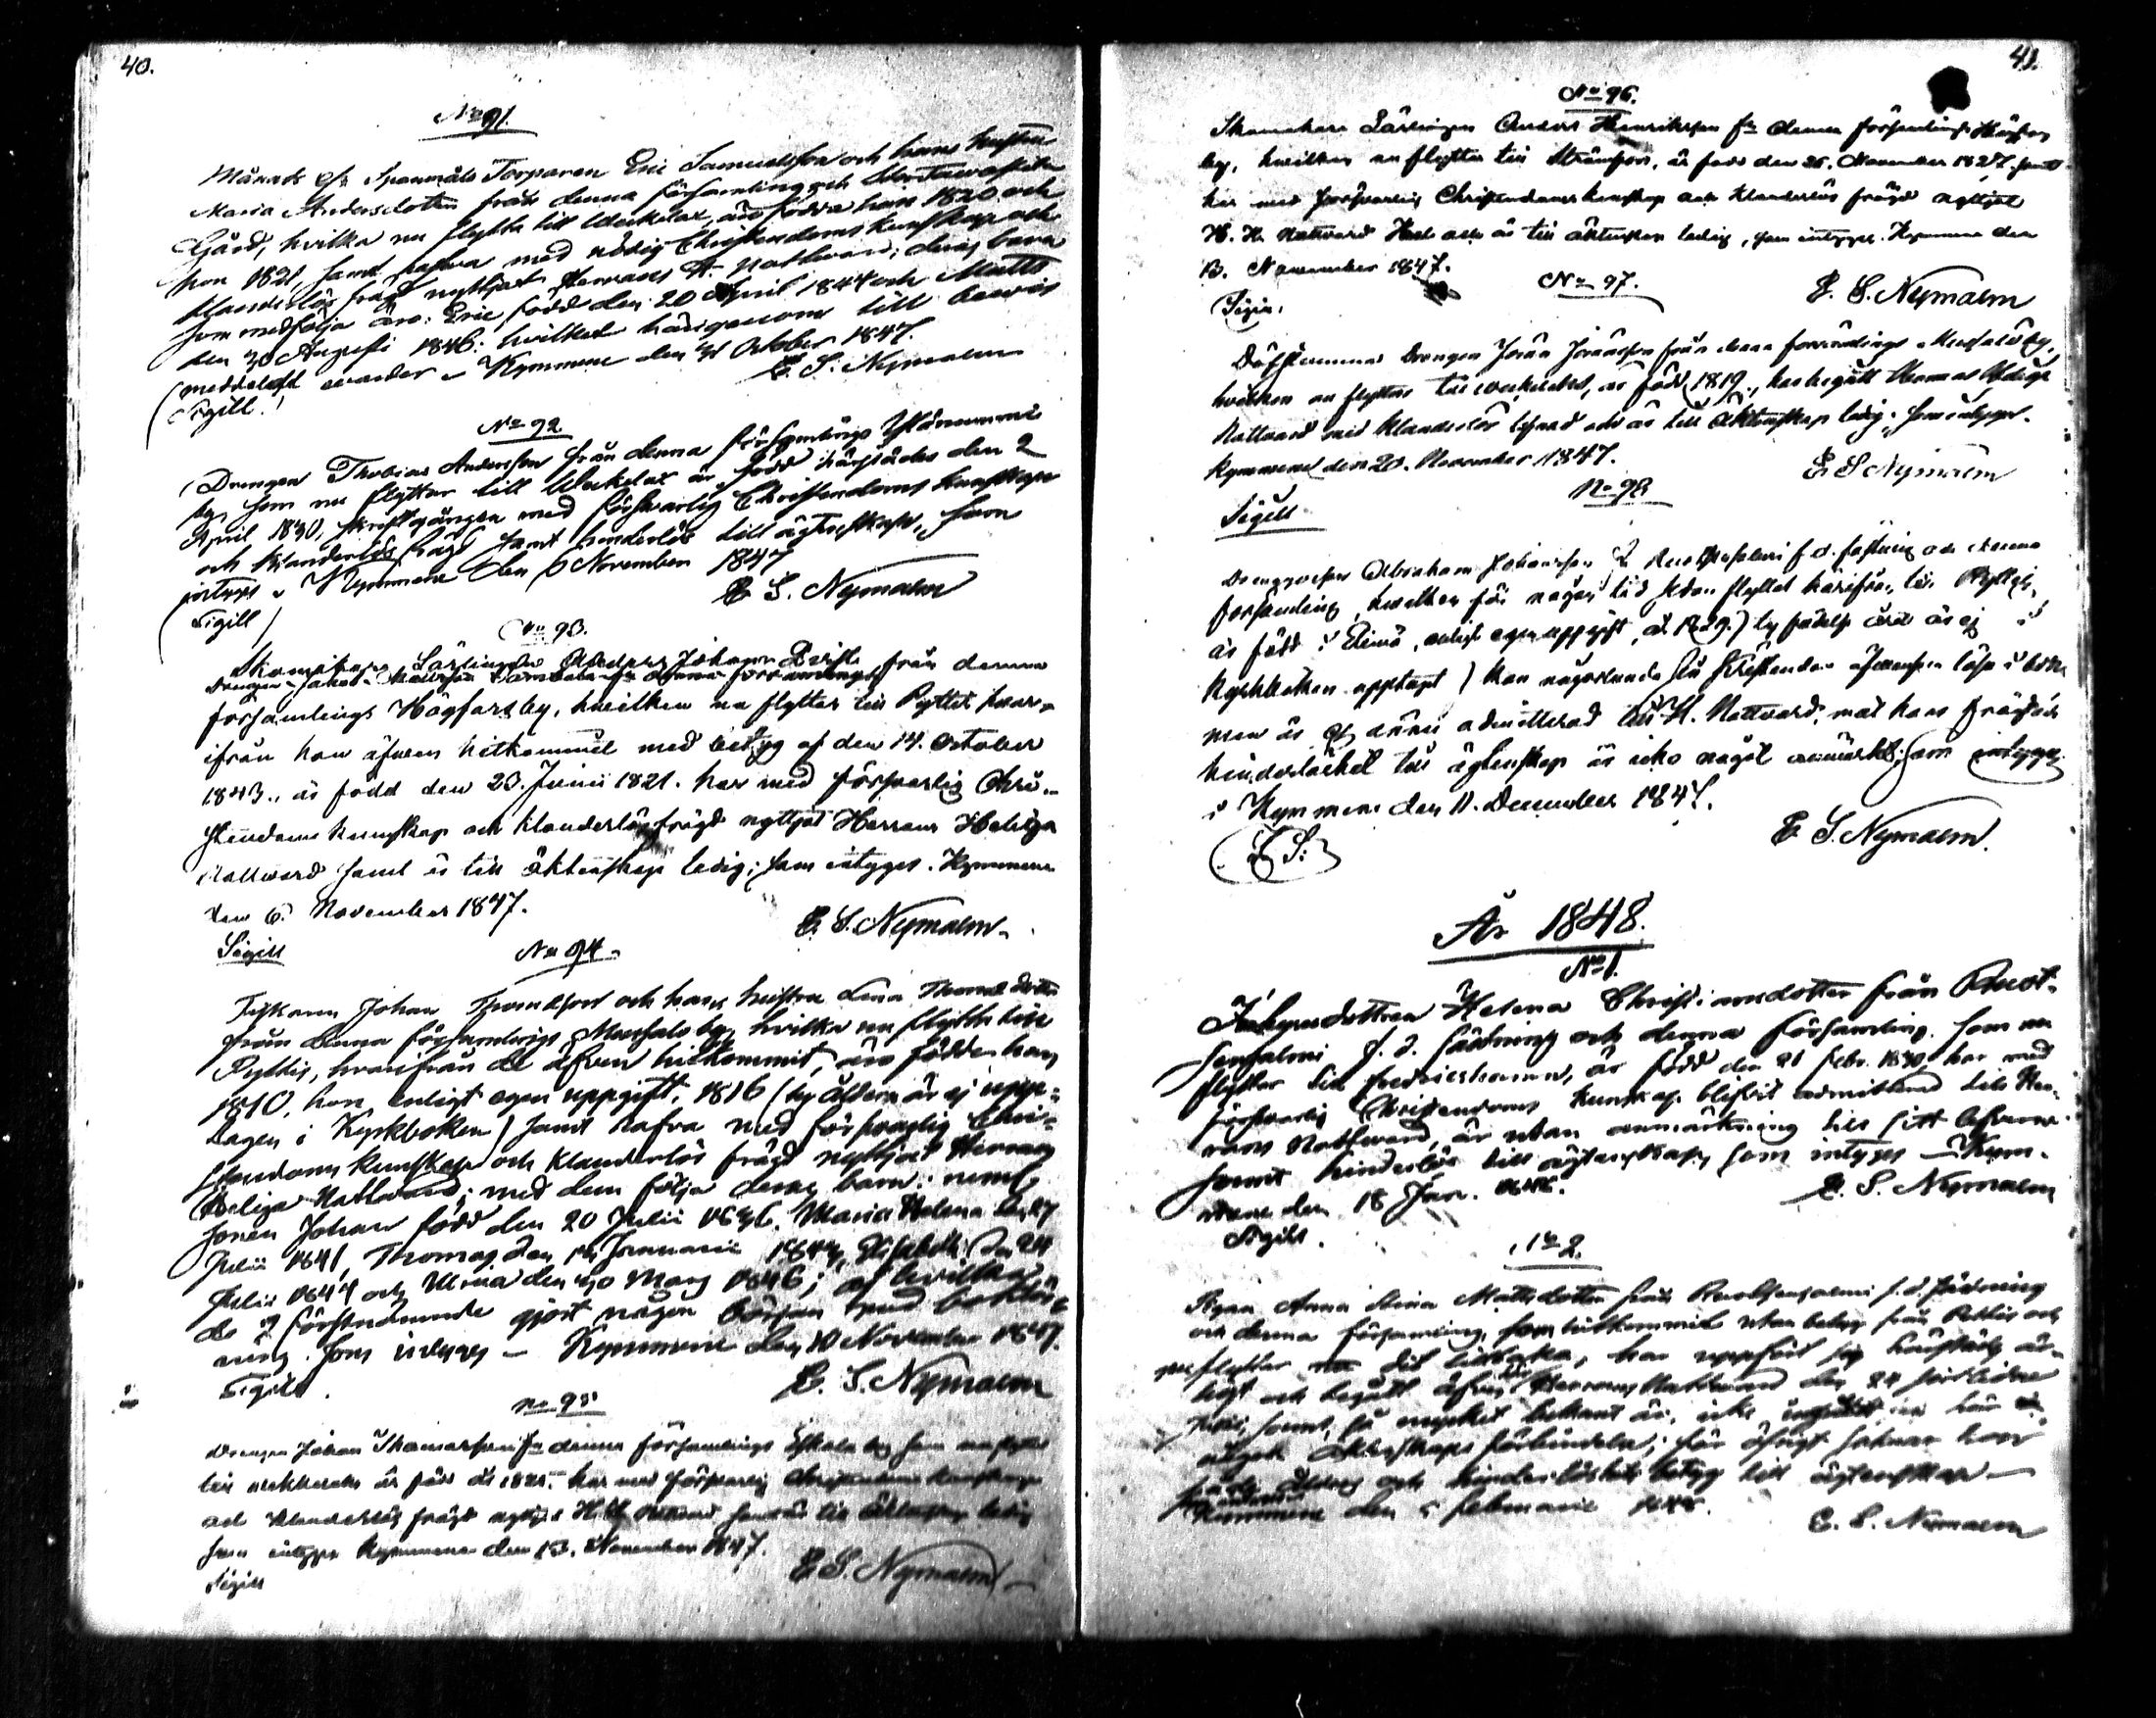 40.
No 91.
Månads Torparen Eric Samuelsson och hans hustru
Maria Andersdotter från denna församling och
Gård, hvilka nu flytta till Weckelax, äro födde han 1820 och
hon 1821, samt hafva med nödig Christendoms kunskap och
klanderlös frägd nyttjat Herrans H. Nattvard; deras barn
som medfölja äro: Eric, född den 20 April 1844 och Matts
den 30 Augusti 1846: hvilket härigenom till bevis
meddelas Kymmene den October 1847.
Sigill. E. S. Nymalm
No 92
Drengen Thobias Andersson från denna församlings
by, som nu flyttar till Weckelax är född härstädes den 2
April 1830, med försvarlig Christendoms kunskap
och klanderlös frägd samt hinderlös till ägtenskap, som
intygas Kymmene den 6 November 1847
Sigill E. S. Nymalm
No 93.
Skomakare Lärlingen Johan från denna
församlings Högfors by, hvilken nu flyttar till Pyttis, hvar-
ifrån han äfven hitkommit med betyg af den 14. October
1843., är född den 23. Junii 1821. har med försvarlig Chri-
stendoms kunskap och klanderlös frägd nyttjat Herrans Heliga
Nattvard samt är till äktenskap ledig; som intygas. Kymmene
den 6. November 1847.
Sigill E. S. Nymalm.
No 94.
Fiskaren Johan Thomasson och hans hustru Lena Thomasdotter
från denna församlings Mussalo by, hvilka nu flytta till
Pyttis, hvarifrån de äfven hitkommit, äro födde han
1810, hon enligt egen uppgift, 1816 (ty åldern är ej uppe-
tagen i Kyrkboken) samt hafva med försvarlig Chri-
stendoms kunskap och klanderlös frägd nyttjat Herrans
Heliga Nattvard; med dem följa deras barn: neml.
sonen Johan född den 20 Julii Maria Helena den 27
Julii 1841, Thomas den Januarii Elisabeth den 24
Julii 1844 och Ulrica den 30 Mars 1846; af hvilka
de förstnämnde gjort någon början med boklär-
ning. som intygas - Kymmene den 10 November 1847.
Sigill. E. S. Nymalm
No 95
Drengen Johan Thomasson fr denna församlings by som nu flyttar
till Weckelax är född år 1825. har med försvarlig Christendoms kunskap
och klanderlös frägd nyttjat H. H. Nattvard samt är till äktenskap ledig
som intygas Kymmene den 13. November 1847.
Sigill E. S. Nymalm
41.
No 96.
Skomakare Lärlingen Anders Henriksson fr denna församlings Högfors
by, hvilken nu flyttar till Strömfors, är född den 26. November 1827. samt
har med försvarlig Christendoms kunskap och klanderlös frägd nyttjat
H. H. Nattvard och är till äktenskap ledig, som intygas. Kymmene den
13. November 1847.
Sigill. E. S. Nymalm
No 97.
Döfstumma Drengen Jöran Jöransson från denna församlings Mussalo by,
hvilken nu flyttar till Weckelax, är född 1819., har begått Herrans Heliga
Nattvard med klanderlös lefnad och är till äktenskap ledig, som intygas.
Kymmene den 20. November 1847. E. S. Nymalm
No 98
Sigill
Drenggossen Abraham Johansson fr Ruotsinsalmi f. d. fästning och denna
församling, hvilken för någon tid sedan flyttat härifrån till Pyttis,
är född i Elimä, enligt egen uppgift, år 1829.) ty födelse året är ej i
Kyrkboken upptaget) kan någorlunda sin Christendom läsa i bok
men är ej ännu admitterad till H. Nattvard, mot hans frägd och
hinderlöshet till ägtenskap är icke något anmärkt, som intygas
i Kymmene den 11. December 1847.
(L. S.) E. S. Nymalm.
År 1848.
No 1.
Inhyses dottren Helena Christiansdotter från Ruot-
sinsalmi f. d. fästning och denna församling, som nu
flyttar till Fredricshamn, är född den 21 Febr. 1830, har med
försvarlig Christendoms kunskap blifvit admitterad till Her-
rans Nattvard, är utan anmärkning till sitt lefverne
samt hinderlös till ägtenskap, som intygas - Kym-
mene den 18 Jan. 1848. E. S. Nymalm
Sigill.
No 2.
Pigan Anna Stina Mattsdotter från Ruotsinsalmi f. d. fästning
och denna församling, som hitkommit utan betyg från Pyttis och
nu flyttar dit tillbaka, har uppfört sig härstädes är-
ligt och begått äfven Herrans Nattvard den 24 sistledne
samt, så mycket bekant är, icke här
något äktenskaps förbindelse; för öfrigt saknar hon
och hinderlöshets betyg till ägtenskap -
Kymmene den 5 Februarii 1848.
E. S. Nymalm